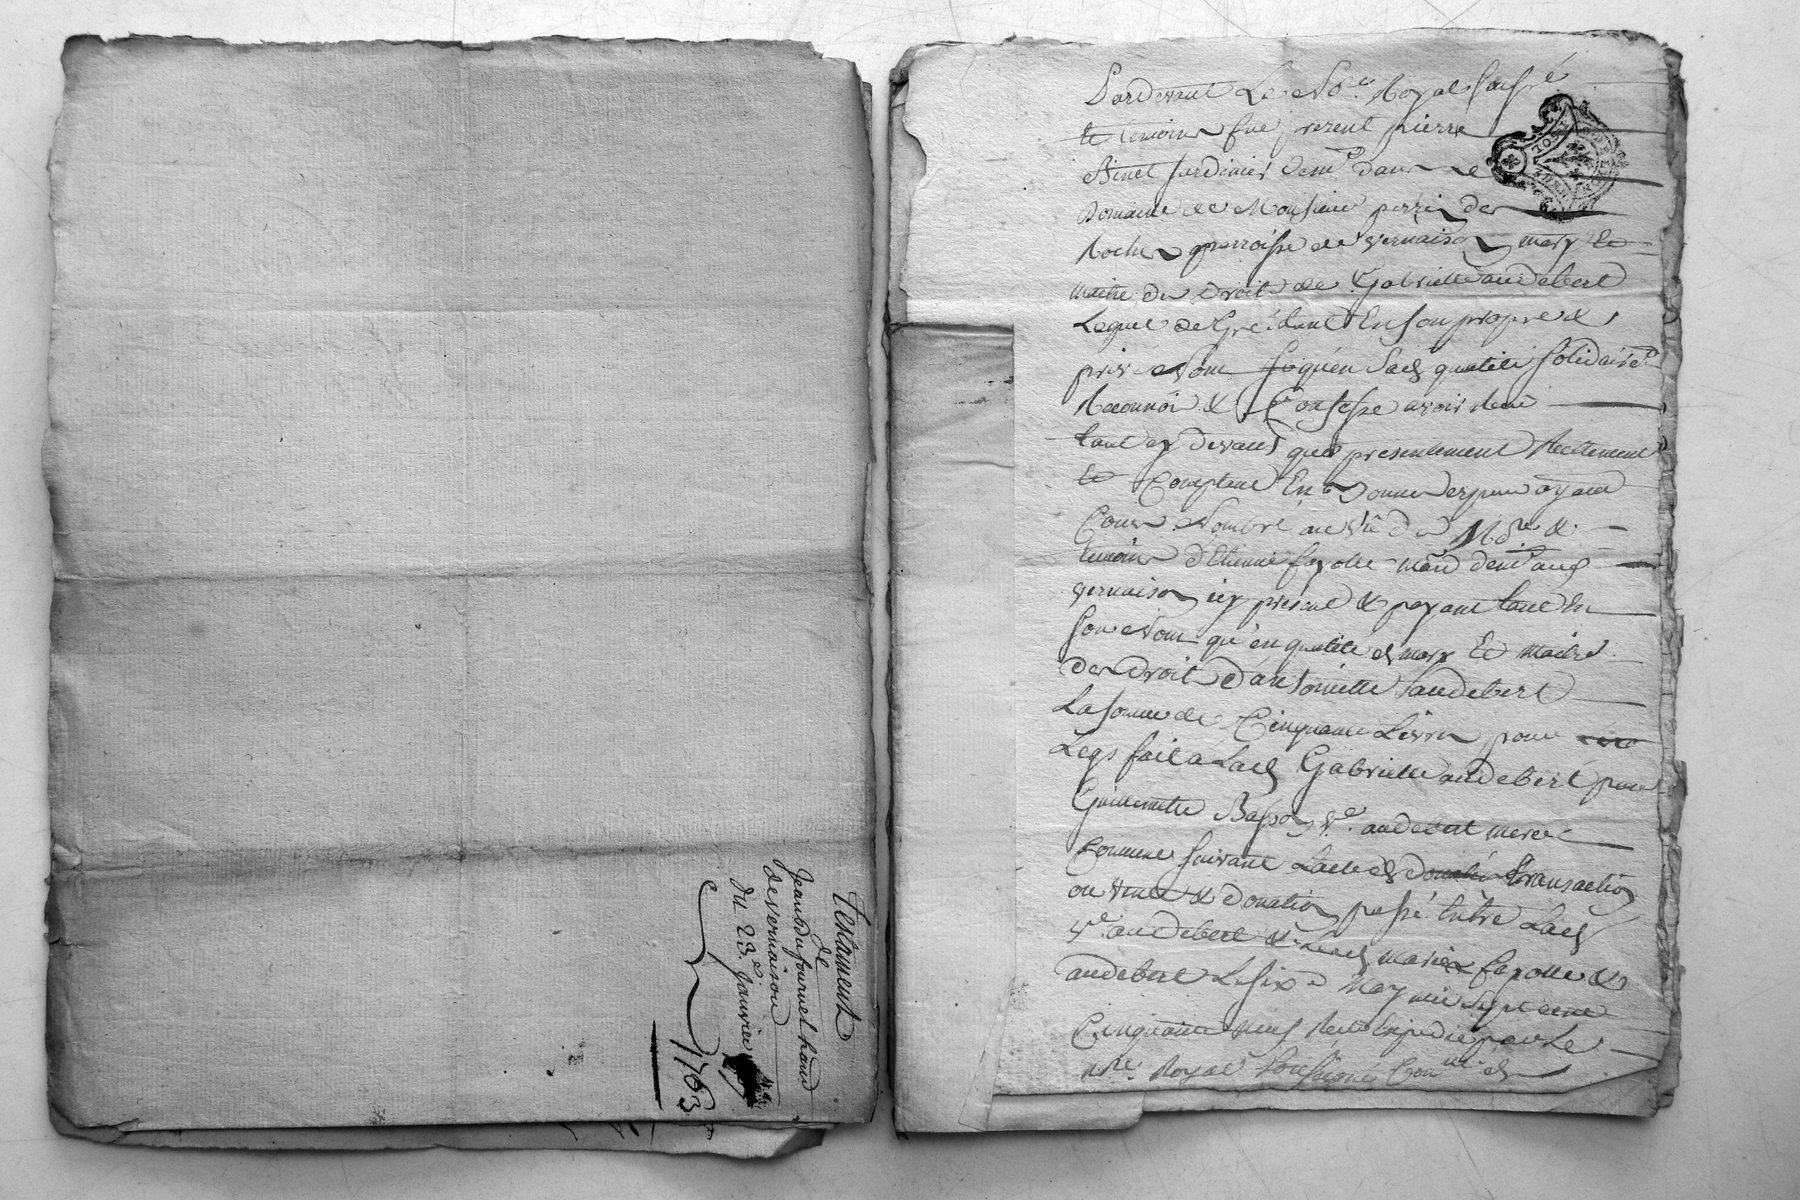 Testament
de
Jean dufournel habitant
de vernaison
du 23.e Janvier
1763
Pardevant Le No.re Royal soussé
et temoins fut present pierre
Binet Jardinier dem.t dans Le
Domaine de Monsieur perrin des
Roches parroisse de vernaison mary et
maitre des Droits de Gabrielle audebert
Lequel de Gré tant En son propre &
privé Nom qu'en lad qualité solidairem.t
Reconnoit & Confesse avoir Recu
tant cy devant que presentement Reellement
et Comptant En Bonnes especes ayant
Cours Nombré au vû du No.re &
temoins d'Etienne fayolle mard dem.t aud
vernaison icy present & payant tant En
son Nom qu'en qualité de mary Et maitre
des Droits d'antoinette audebert
La somme de Cinquante Livres pour
Legs fait a Lad Gabrielle audebert par
Guillemette Basson V.e audebert mere
Commune suivant L'acte de transaction
ou vente & donation passé Entre Lad
V.e audebert & Lesd mariés fayolle &
audebert Le six May mil sept cent
Cinquante neuf Recu Expedié par Le
No.re Royal soussigné